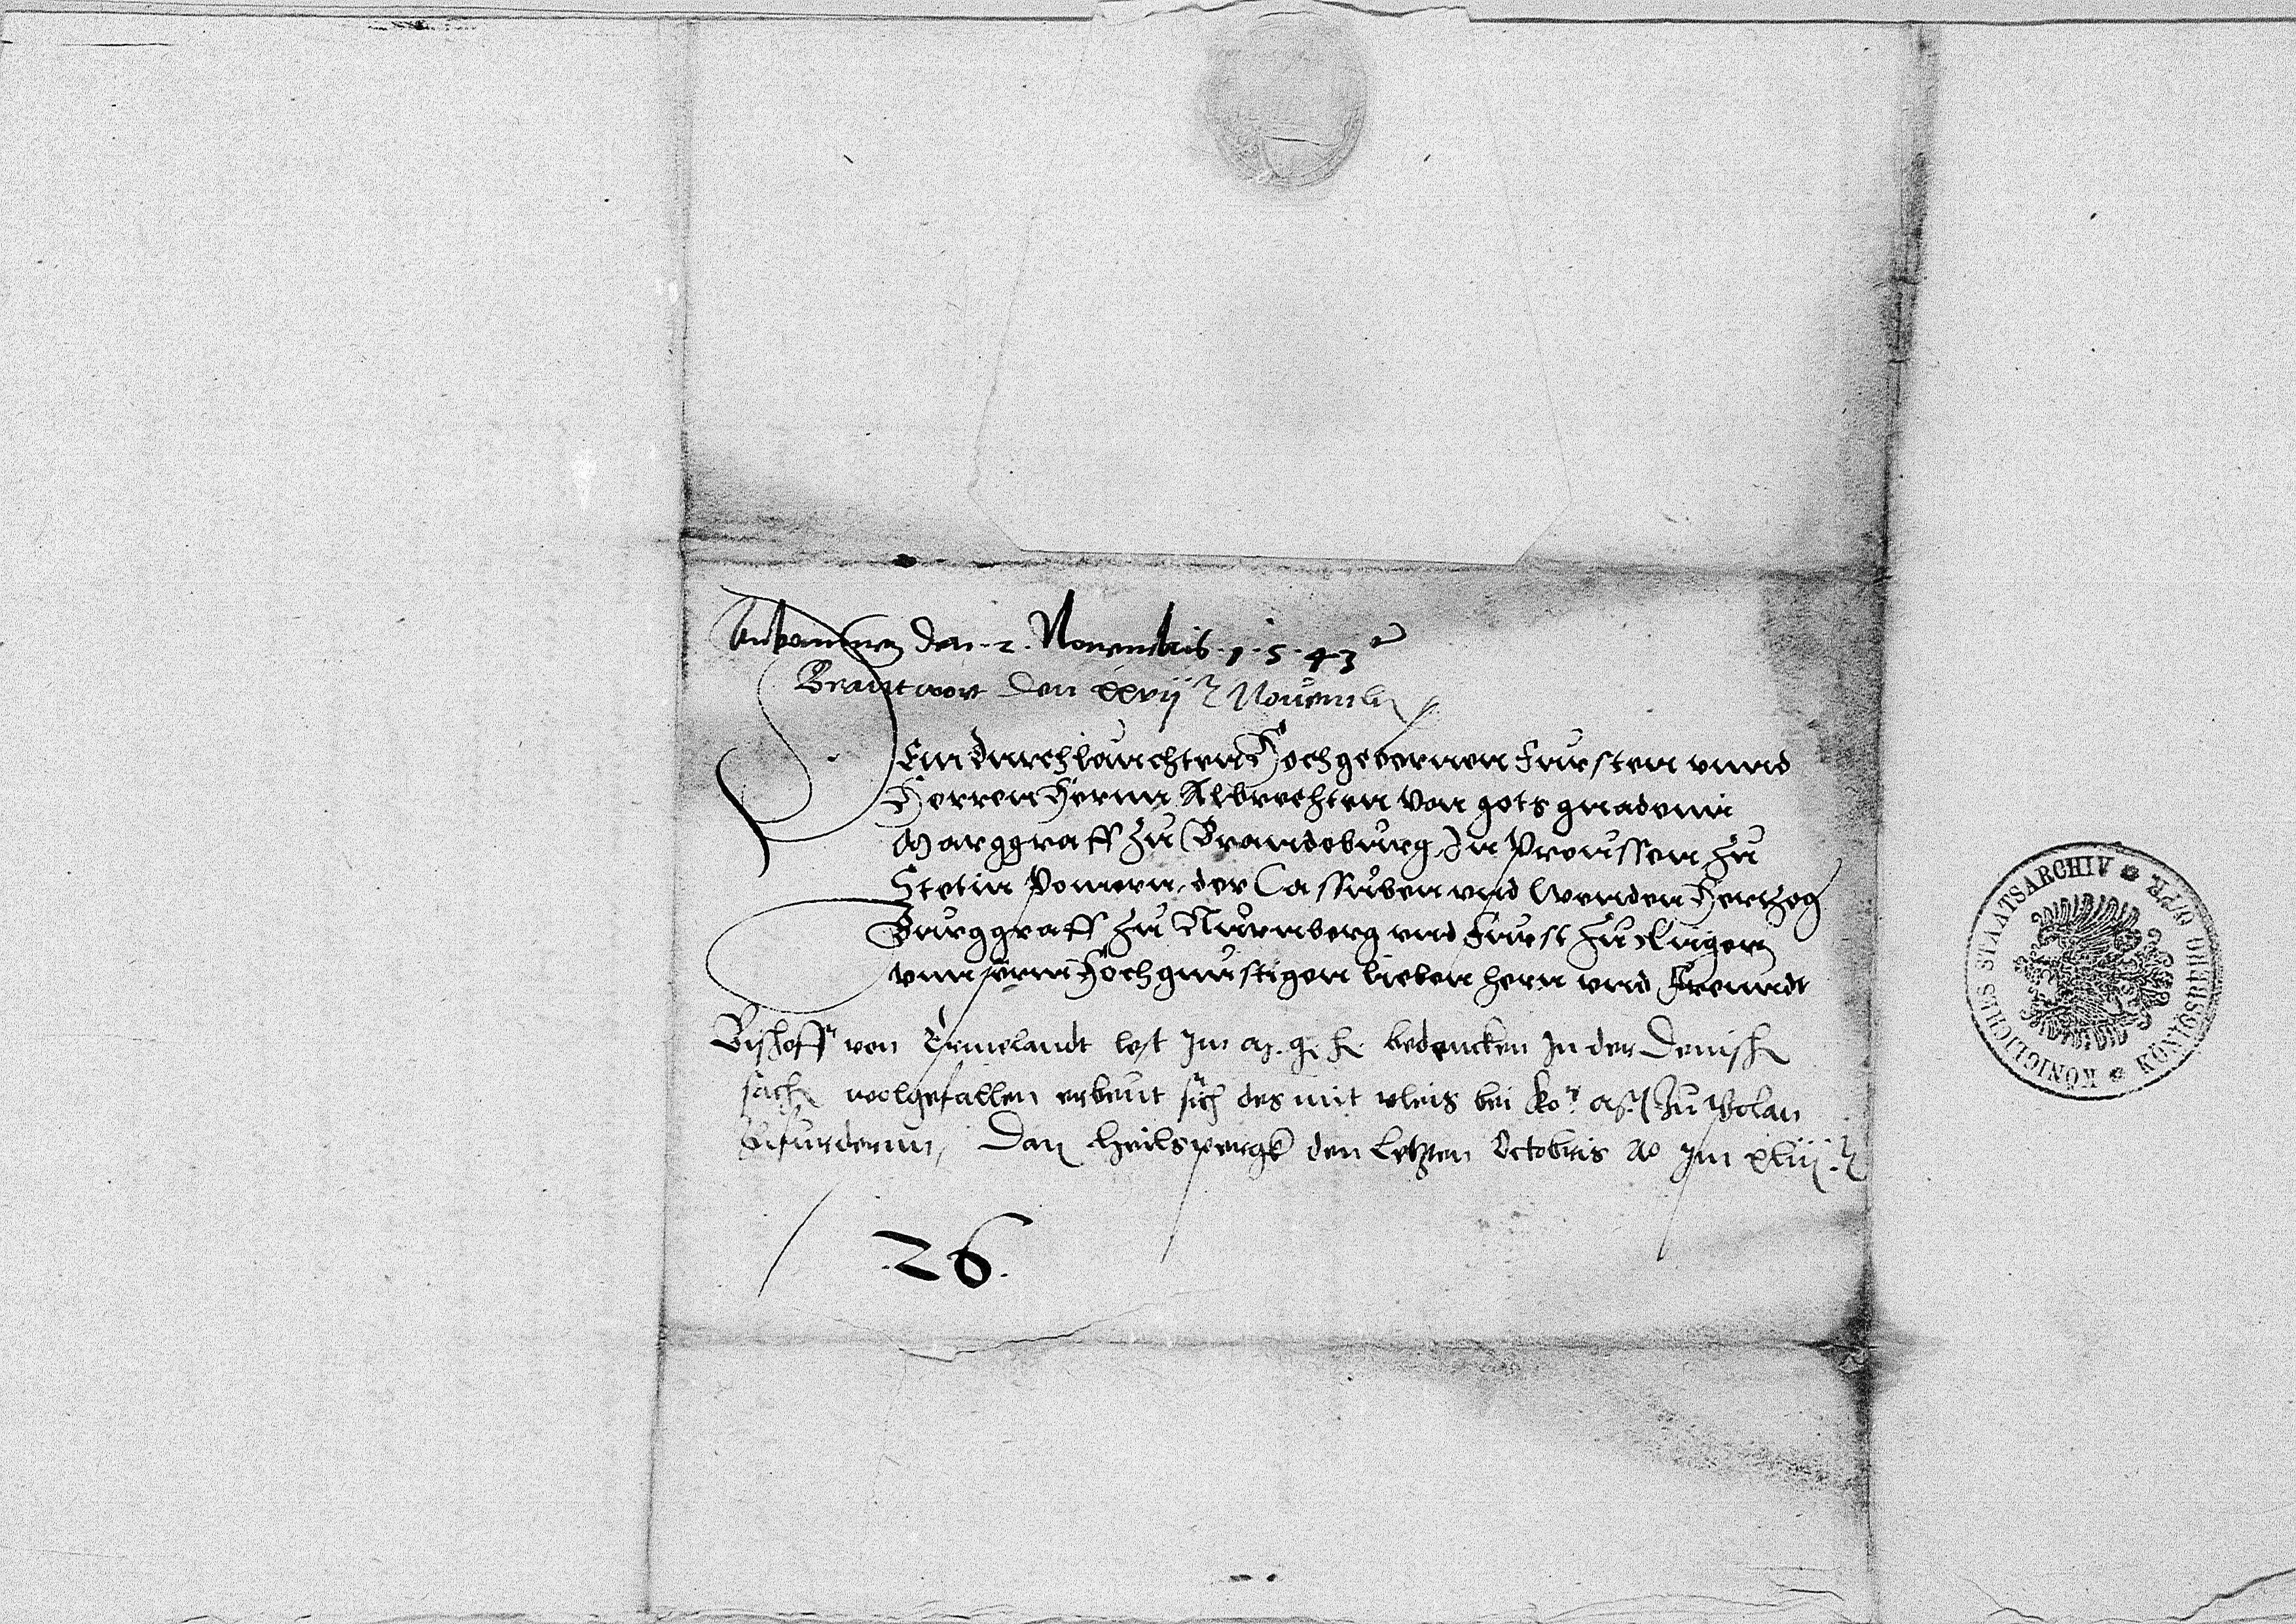 Ankommen den .2. Novembris .1.5.43
Beantwort den xxvij Novemb
Dem Durchlauchten Hochgebornen Fursten unnd
Herren Herrn Albrechten von gots gnadenn
Marggraff zu Brandeburg In Preussen zu
Stetin Pomern der Cassuben und Wenden Hertzog
Burggraff zu Nurmberg und Furst zu Rugen
unnserm Hochgunstigen lieben hern und Freundt
Bischoff von Ermelandt lest Im m. g. h. bedencken In der Denisch
sach wolgefallen erbeut sich des mit vleis bei Ko. Mt. zu Polan
zufurdernn, Dat Heilspergk den letzten Octobris Ao Im xliij
.26.
KÖNIGLICHES STAATSARCHIV * KÖNIGSBERG O/PR. *